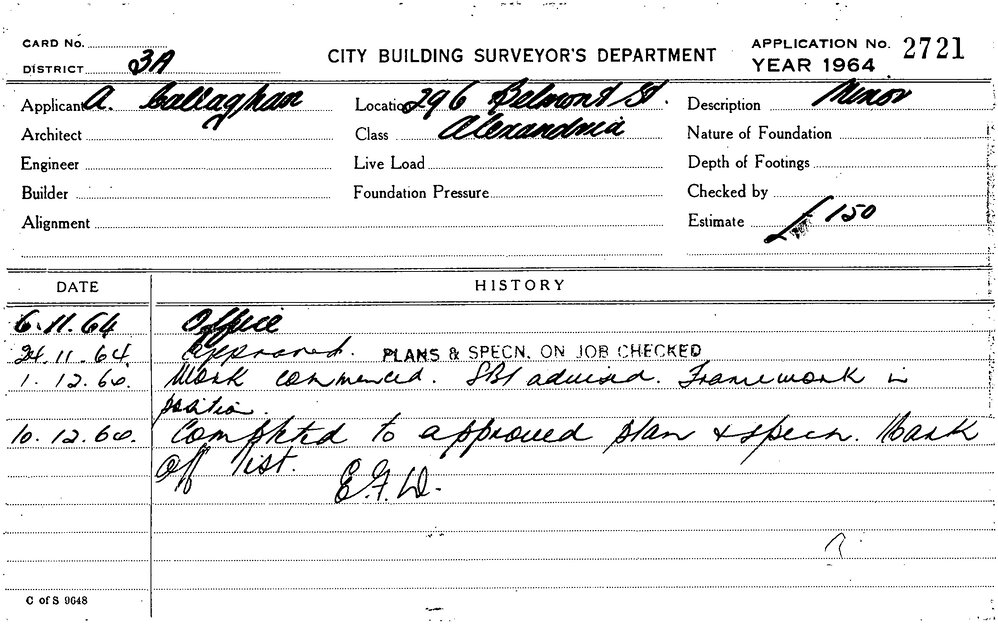 CARD No.
DISTRICT 3A
CITY BUILDING SURVEYOR'S DEPARTMENT
APPLICATION No. 2721
YEAR 1964
Applicant A. Callaghan
Location 296 Belmont St.
Description Minor
Architect
Class Alexandria
Nature of Foundation
Engineer
Live Load
Depth of Footings
Builder
Foundation Pressure
Checked by
Alignment
Estimate £150
DATE HISTORY
6.11.64 Office
24.11.64 approved. PLANS & SPECN. ON JOB CHECKED
1.12.64. Work commenced. SBI advised. Framework in
position.
10.12.64. Completed to approved plan & specn. Mark
off list. E.F.W.
C of S 9648